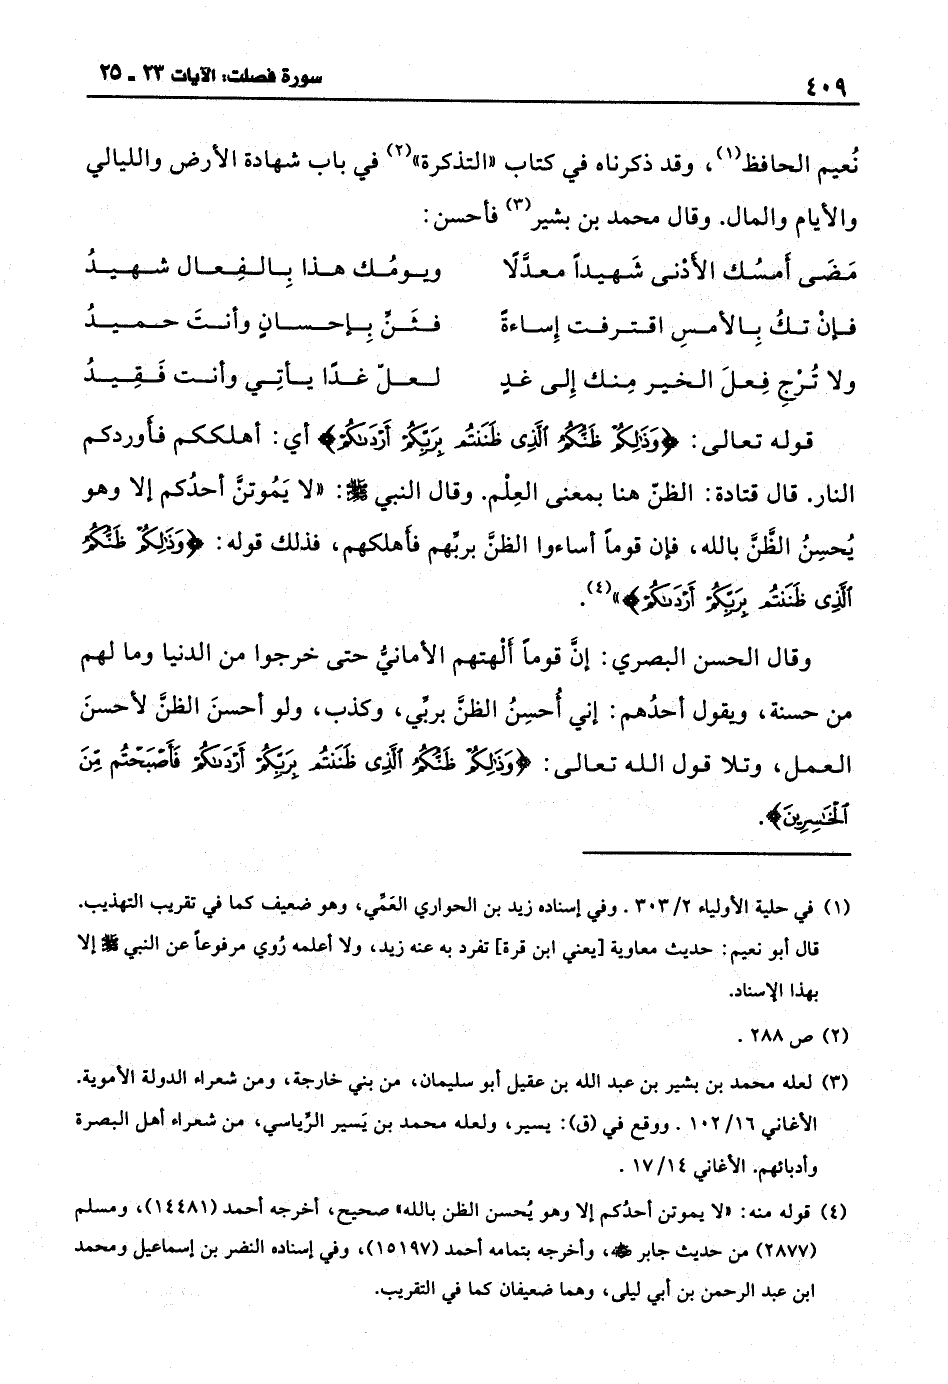 سورة فصلت: الآيات ٢٣ ـ ٢٥
٤٠٩
نُعيم الحافظ(١)، وقد ذكرناه في كتاب «التذكرة»(٢) في باب شهادة الأرض والليالي
والأيام والمال. وقال محمد بن بشير(٣) فأحسن:
مَضَى أمسُك الأَدْنى شَهيداً معدَّلًا ويومُك هذا بِالفِعال شهيدُ
فإنْ تكُ بِالأمسِ اقترفت إِساءةً فثَنِّ بِإحسانٍ وأنتَ حميدُ
ولا تُرْجِ فِعلَ الخير مِنك إلى غدٍ لعلّ غدًا يأتِي وأنت فَقِيدُ
قوله تعالى: ﴿وَذَٰلِكُمْ ظَنُّكُمُ ٱلَّذِى ظَنَنتُم بِرَبِّكُمْ أَرْدَىٰكُمْ﴾ أي: أهلككم فأوردكم
النار. قال قتادة: الظنّ هنا بمعنى العِلْم. وقال النبي ﷺ: «لا يَمُوتنَّ أحدُكم إلا وهو
يُحسِنُ الظَّنَّ بالله، فإن قوماً أساءوا الظنَّ بربِّهم فأهلكهم، فذلك قوله: ﴿وَذَٰلِكُمْ ظَنُّكُمُ
ٱلَّذِى ظَنَنتُم بِرَبِّكُمْ أَرْدَىٰكُمْ﴾»(٤).
وقال الحسن البصري: إنَّ قوماً ألْهتهم الأمانيُّ حتى خرجوا من الدنيا وما لهم
من حسنة، ويقول أحدُهم: إني أُحسِنُ الظنَّ بربِّي، وكذب، ولو أحسنَ الظنَّ لأحسنَ
العمل، وتلا قول الله تعالى: ﴿وَذَٰلِكُمْ ظَنُّكُمُ ٱلَّذِى ظَنَنتُم بِرَبِّكُمْ أَرْدَىٰكُمْ فَأَصْبَحْتُم مِّنَ
ٱلْخَٰسِرِينَ﴾.
(١) في حلية الأولياء ٣٠٣/٢ . وفي إسناده زيد بن الحواري العَمِّي، وهو ضعيف كما في تقريب التهذيب.
قال أبو نعيم: حديث معاوية [يعني ابن قرة] تفرد به عنه زيد، ولا أعلمه رُوي مرفوعاً عن النبي ﷺ إلا
بهذا الإسناد.
(٢) ص ٢٨٨ .
(٣) لعله محمد بن بشير بن عبد الله بن عقيل أبو سليمان، من بني خارجة، ومن شعراء الدولة الأموية.
الأغاني ١٠٢/١٦ . ووقع في (ق): يسير، ولعله محمد بن يَسير الرِّياسي، من شعراء أهل البصرة
وأدبائهم. الأغاني ١٧/١٤ .
(٤) قوله منه: «لا يموتن أحدُكم إلا وهو يُحسن الظن بالله» صحيح، أخرجه أحمد (١٤٤٨١)، ومسلم
(٢٨٧٧) من حديث جابر ﷺ، وأخرجه بتمامه أحمد (١٥١٩٧)، وفي إسناده النضر بن إسماعيل ومحمد
ابن عبد الرحمن بن أبي ليلى، وهما ضعيفان كما في التقريب.